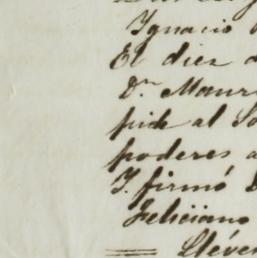 Ignacio
El diez
Dn. Maur
pide al So
poderes a
Y. firmó
Feliciano
= Lléve